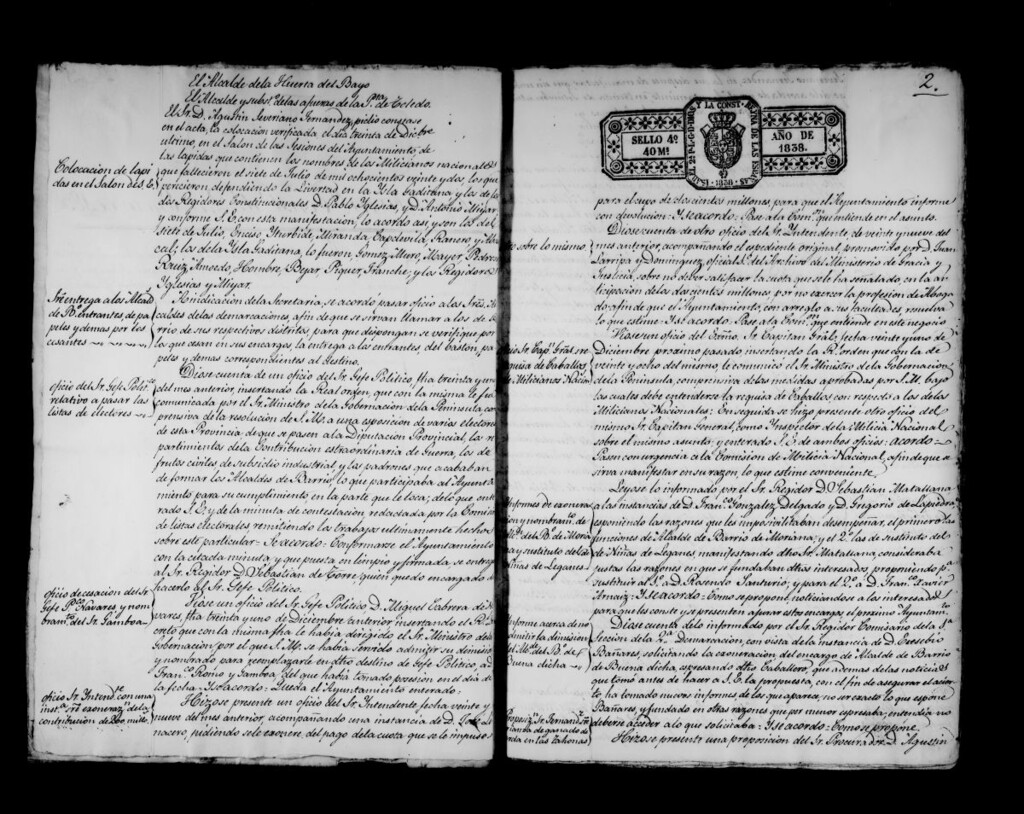 El Alcalde de la Huerta del Bayo
El Alcalde y subst.º de las afueras de la P.ta de Toledo.
El Sr. D. Agustin Severiano Fernandez, pidio constase
en el acta, la colocacion verificada el dia treinta de Dicbre
ultimo, en el Salon de las Sesiones del Ayuntamiento, de
Colocacion de lapi
das en el Salon de S. E.
las lapidas que contienen los nombres de los Milicianos nacionales
que fallecieron el siete de Julio de mil ochocientos veinte y dos, los que
perecieron defendiendo la Livertad en la Ysla Gaditana, y los de los
dos Regidores Constitucionales D. Pablo Yglesias, y D. Antonio Miyar
y conforme S. E. con esta manifestacion, lo acordo asi, y son los del
siete de Julio, Enciso, Yturbide, Miranda, Capdevila, Ranero, y
los de la Ysla Gaditana, lo fueron Gomez, Muro, Mayer, Pedro
Ruiz, Amcedo, Hombre, Bejar, Piquer, Franche, y los Regidores
Yglesias y Miyar.
Srê entrega a los Alcald.
de B.º entrantes, de pa
peles y demas por los
cesantes
A indicacion de la Secretaria, se acordó pasar oficio a los Sres. Al
caldes de las demarcaciones, afin de que se sirvan llamar a los de Ba
rrio de sus respectivos distritos, para que dispongan se verifique por
los que cesan en sus encargos, la entrega a los entrantes, del baston, pa
peles y demas correspondientes al destino.
oficio del Sr. Gefe Politº
relativo a pasar las
listas de electores
Diose cuenta de un oficio del Sr. Gefe Politico, fha treinta y uno
del mes anterior, insertando la Real orden, que con la misma le fue
comunicada por el Sr. Ministro de la Gobernacion de la Peninsula com
prensiva de la resolucion de S. M. a una esposicion de varios electores
de esta Provincia, de que se pasen a la Diputacion Provincial, los re
partimientos de la Contribucion estraordinaria de Guerra, los de
frutos civiles, de subsidio industrial, y los padrones que acababan
de formar los Alcaldes de Barrio; lo que participaba al Ayunta
miento para su cumplimiento en la parte que le toca; de lo que ente
rado S. E. y de la minuta de contestacion, redactada por la Comision
de listas electorales remitiendo los trabajos ultimamente hechos
sobre este particular = Se acordo = Conformarse el Ayuntamiento
con la citada minuta, y que puesta en limpio y firmada, se entregue
al Sr. Regidor D. Sebastian de Torre, quien quedó encargado de
hacerlo al Sr. Gefe Politico.
oficio de cesacion del Sr.
Gefe P.co Navares y nom
bram.to del Sr. Gamboa
Viose un oficio del Sr. Gefe Politico D. Miguel Cabrera de Ne
vares, fha treinta y uno de Diciembre anterior insertando el R.l De
creto que con la misma fha le habia dirigido el Sr. Ministro de la
Gobernacion, por el que S. M. se habia servido admitir su dimision
y nombrado para reemplazarle en dho destino de Gefe Politico, a D.
Fran.co Romo y Gamboa, del que habia tomado posesion en el dia de
la fecha = Se acordo = Queda el Ayuntamiento enterado.
oficio Sr. Intend.te con una
inst.ª srê exonerar.ª de la
contribucion de 200 mill.s
Hizose presente un oficio del Sr. Yntendente fecha veinte y
nueve del mes anterior, acompañando una instancia de D.
nacero, pidiendo se le exonere, del pago de la cuota que se le impuso
2.
ISABEL 2ª P. L. G. D. DIOS Y LA CONST. REYNA DE LAS ESPAÑAS
1838
SELLO 4º
40 Mˢ
AÑO DE
1838.
para el cupo de doscientos millones, para que el Ayuntamiento informe
con devolucion = Se acordo = Pase a la Com.on que entiende en el asunto.
sobre lo mismo
Diose cuenta de otro oficio del Sr. Yntendente, de veinte y nueve del
mes anterior, acompañando el espediente original, promovido por D. Juan
Larripa y Dominguez, oficial 1.º del Archivo del Ministerio de Gracia y
Justicia, sobre no deber satisfacer la cuota que se le ha señalado en la an
ticipacion de los doscientos millones, por no exercer la profesion de Aboga
do afin de que el Ayuntamiento, con arreglo a sus facultades resuelva
lo que estime = Se acordo = Pase a la Com.on que entiende en este negocio
Sr. Cap.n Gral. re
quisa de Caballos,
de Milicianos Nacion.s
Viose un oficio del Exmo. Sr. Capitan Gral. fecha veinte y uno de
Diciembre proximo pasado insertando la R. orden que con la de
veinte y ocho del mismo, le comunicó el Sr. Ministro de la Gobernacion
de la Peninsula, comprensiva de las medidas aprobadas por S. M. bajo
las cuales debe entenderse la requisa de Caballos, con respecto a los de los
Milicianos Nacionales = En seguida se hizo presente otro oficio del
mismo Sr. Capitan General, como Ynspector de la Milicia Nacional
sobre el mismo asunto, y enterado S. E. de ambos oficios = acordo =
Pasen con urgencia a la Comision de Milicia Nacional, afin de que se
sirva manifestar en su razon, lo que estime conveniente.
Informes de exonera
y nombram.to de
del B.º de Moria
na y sustituto de los
Niñas de Leganes
Leyose lo informado por el Sr. Regidor D. Sebastian Matallana
a las instancias de D. Fran.co Gonzalez Delgado y D. Gregorio de Lapiedra
esponiendo las razones que les imposivilitaban desempeñar, el primero las
funciones de Alcalde de Barrio de Moriana; y el 2.º las de sustituto del
de Niñas de Leganes, manifestando dho Sr. Matallana, consideraba
justas las razones en que se fundaban dhos interesados, proponiendo p.ª
sustituir al 1.º a D. Rosendo Santurio, y para el 2.º a D. Fran.co Xavier
Arnaiz = Se acordo = Como se propone, noticiandose a los interesados
para que les conste y se presenten a jurar estos encargos, el procsimo Ayuntam.to
Informe acerca de no
admitir la dimision
del Alc.e del B.º de
Buena dicha
Diose cuenta de lo informado por el Sr. Regidor Comisario de la 1ª
Seccion de la 2.ª Demarcacion, con vista de la instancia de D. Eusebio
Bañares, solicitando la exoneracion del encargo de Alcalde de Barrio
de Buena dicha, espresando dho Caballero, que ademas de las noticias
que tomó antes de hacer a S. E. la propuesta, con el fin de asegurar el acier
to ha tomado nuevos informes, de los que aparece, no ser exacto lo que espone
Bañares, y fundado en otras razones que por menor espresaba; entendia no
deberse acceder a lo que solicitaba = Y se acordo = Como se propone.
Proposiz.on Sr. Fernandez srê
de ganado de
cerda en las tahonas
Hizose presente una proposicion del Sr. Procurador D. Agustin